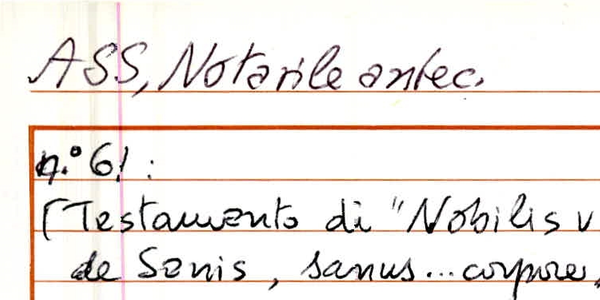 ASS, Notarile antec.
n.° 61:
[Testamento di "Nobilis v
de Sonis, sanus... corpore,